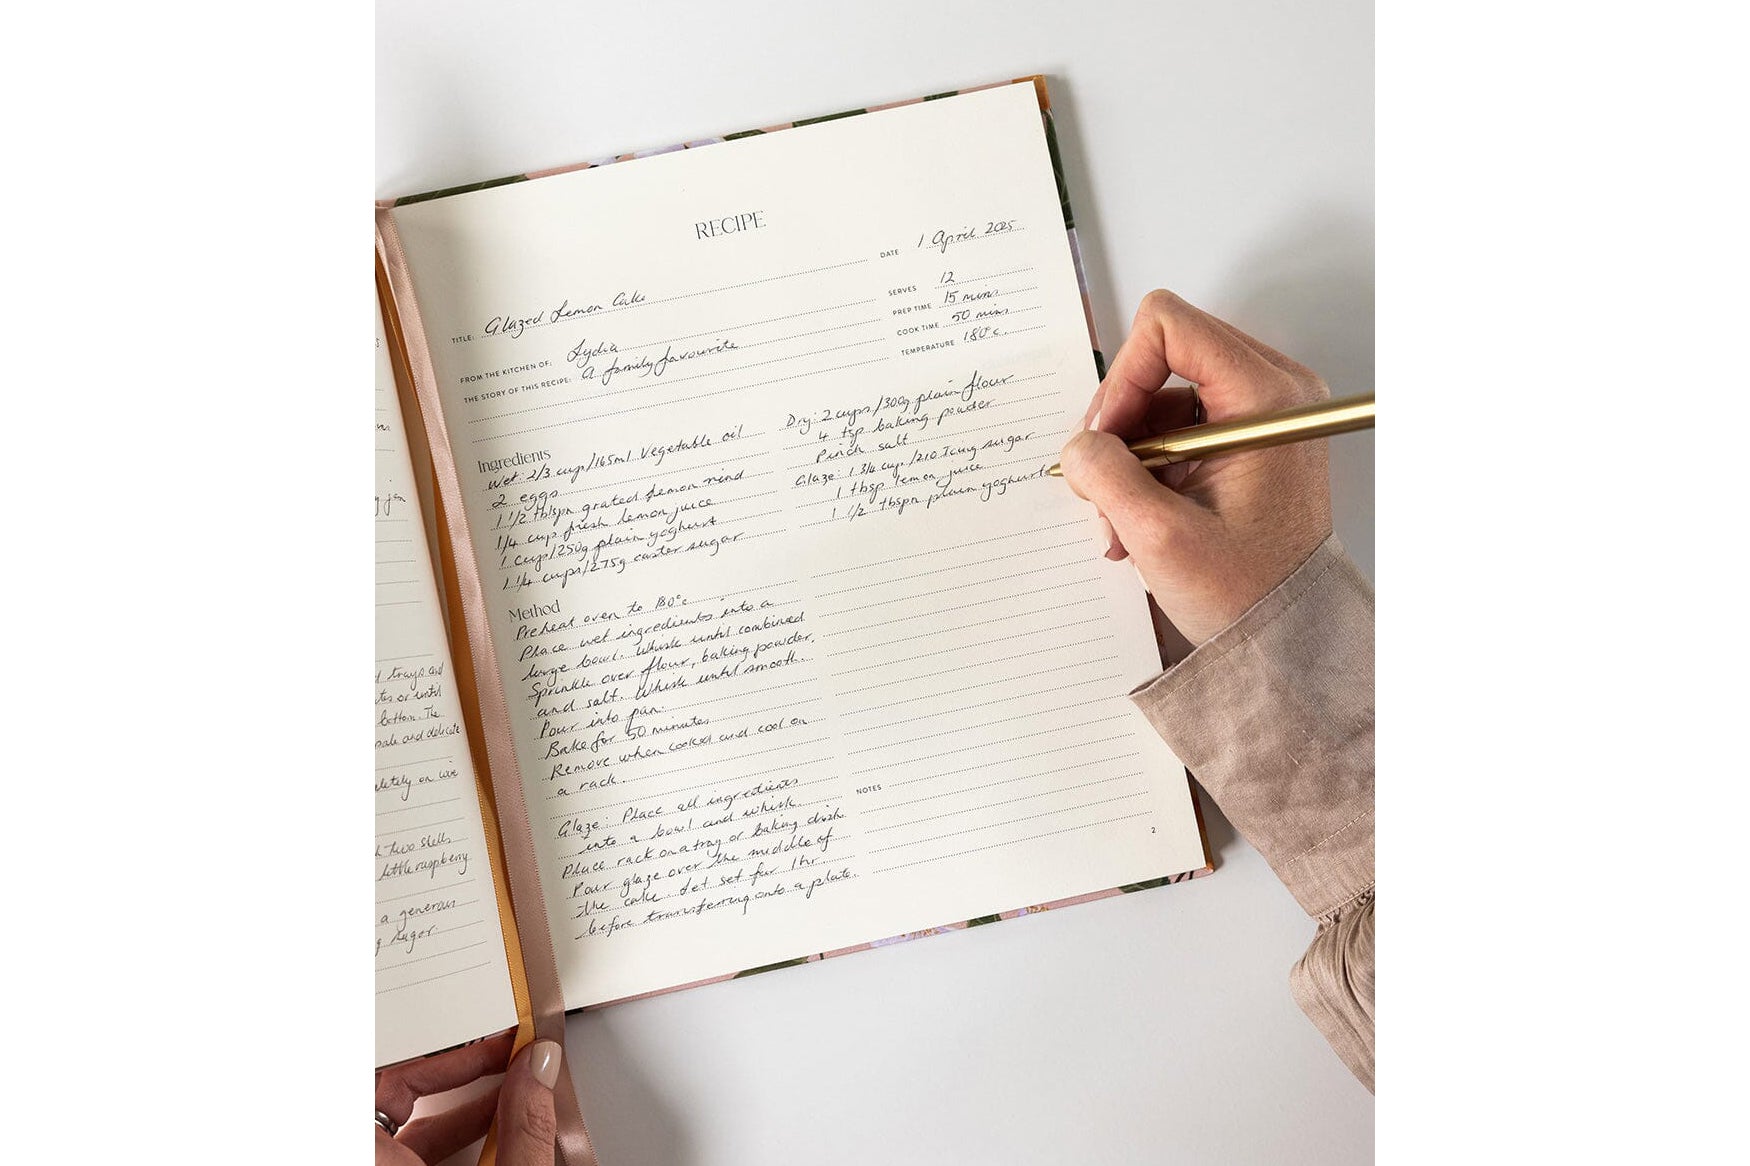 s
ns
y jam
d trays and
tes or until
bottom. The
pale and delicate
pletely on wire
d two shells
little raspberry
a generous
g sugar
RECIPE
DATE 1 April 2025
TITLE: Glazed Lemon Cake
SERVES 12
FROM THE KITCHEN OF: Lydia
PREP TIME 15 mins
THE STORY OF THIS RECIPE: A family favourite
COOK TIME 50 mins
TEMPERATURE 180°c.
Ingredients
Wet: 2/3 cup/165ml Vegetable oil
2 eggs
1 1/2 tblspn grated lemon rind
1/4 cup fresh lemon juice
1 cup/250g plain yoghurt
1 1/4 cups/275g caster sugar
Dry: 2 cups/300g plain flour
4 tsp baking powder
Pinch salt
Glaze: 1 3/4 cup/210 Icing sugar
1 tbsp lemon juice
1 1/2 tbspn plain yoghurt
Method
Preheat oven to 180°c
Place wet ingredients into a
large bowl. Whisk until combined
Sprinkle over flour, baking powder,
and salt. Whisk until smooth.
Pour into pan.
Bake for 50 minutes
Remove when cooked and cool on
a rack.
Glaze: Place all ingredients
into a bowl and whisk.
Place rack on a tray or baking dish
Pour glaze over the middle of
the cake. Let set for 1hr
before transferring onto a plate.
NOTES
2